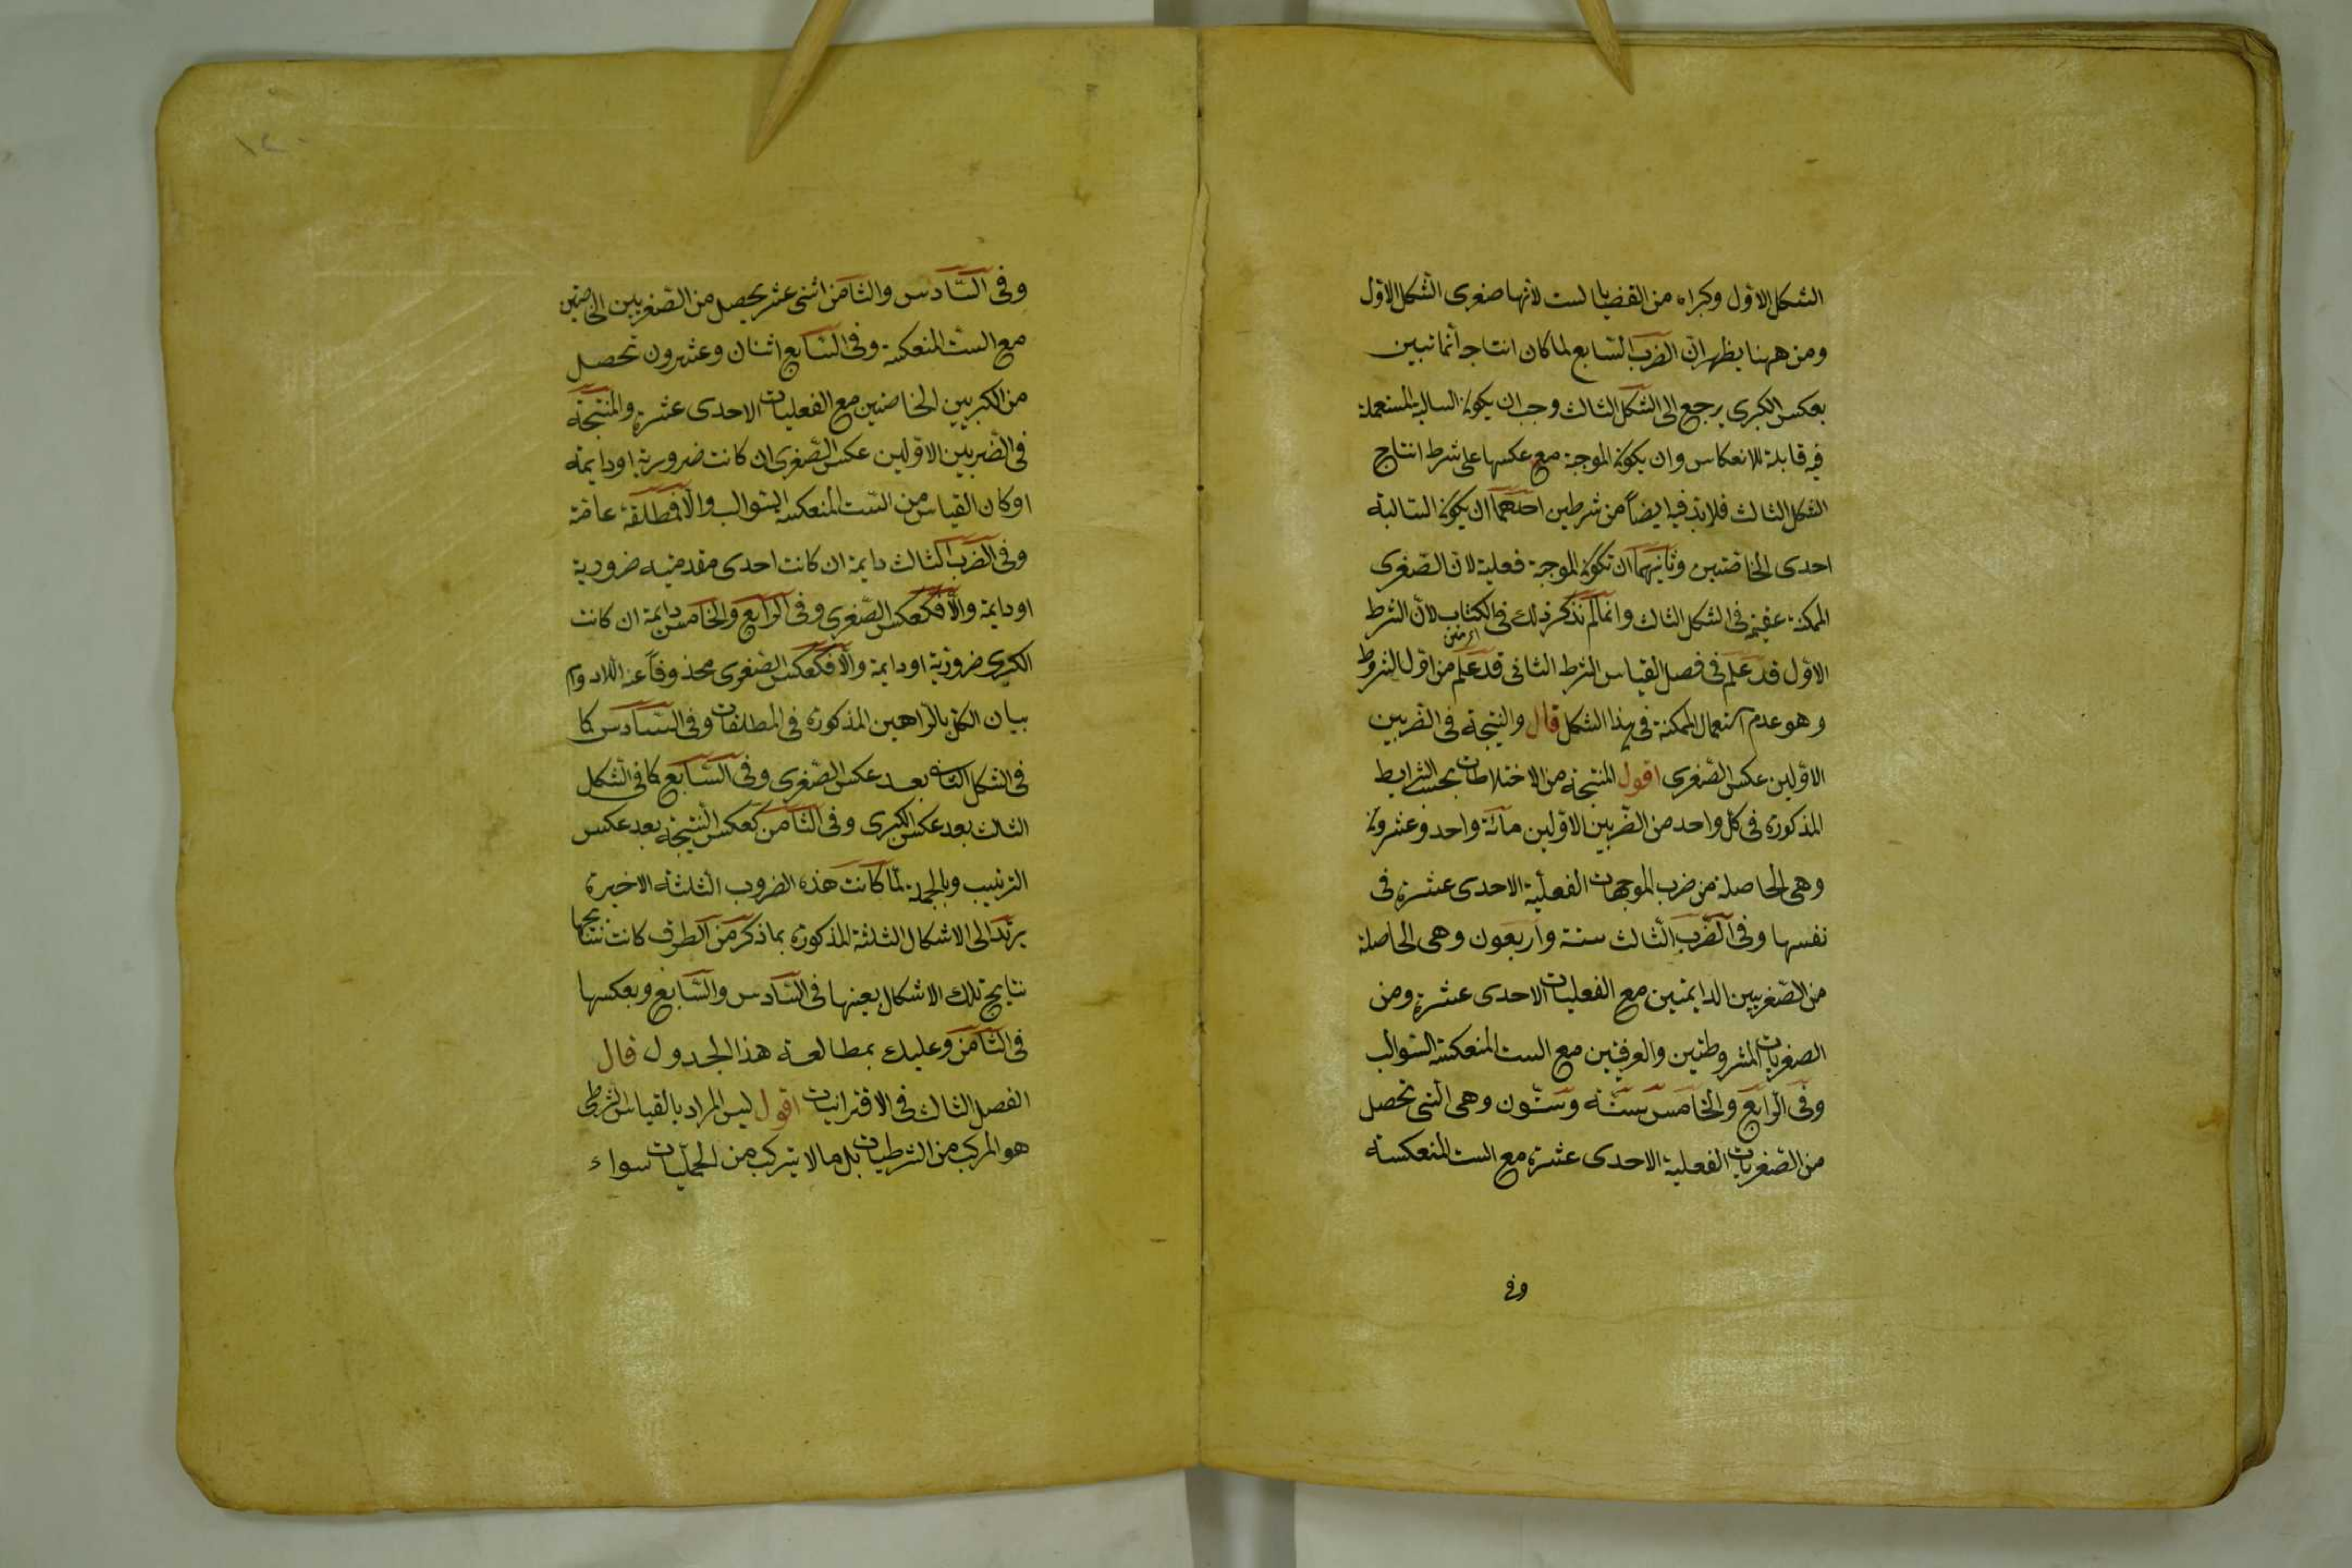 الشكل الاول وكبراه من القضايا الست لانها صغرى الشكل الاول
ومن ههنا يظهر ان الضرب السابع لما كان انتاجه انما تبين
بعكس الكبرى يرجع الى الشكل الثالث وجب ان يكون السالبة المستعملة
فيه قابلة للانعكاس وان يكون الموجبة مع عكسها على شرط انتاج
الشكل الثالث فلابد فيه ايضاً من شرطين احدهما ان يكون السالبة
احدى الخاصتين وثانيهما ان تكون الموجبة فعلية لان الصغرى
الممكنة عقيمة فى الشكل الثالث وانما لم نذكر ذلك فى الكتاب لان الشرط
الاول قد علم فى فصل القياس الشرط الثانى قد علم من اول الشروط
وهو عدم استعمال الممكنة فى هذا الشكل قال والنتيجة فى الضربين
الاولين عكس الصغرى اقول المنتجة من الاختلاطات بحسب الشرايط
المذكورة فى كل واحد من الضربين الاولين مائة واحد وعشرون
وهى الحاصلة من ضرب الموجهات الفعلية الاحدى عشرة فى
نفسها وفى الضرب الثالث ستة واربعون وهى الحاصلة
من الصغريين الدايمتين مع الفعليات الاحدى عشرة ومن
الصغريات المشروطتين والعرفيتين مع الست المنعكسة السوالب
وفى الرابع والخامس ستة وستون وهى التى تحصل
من الصغريات الفعلية الاحدى عشرة مع الست المنعكسة
وفى
وفى السادس والثامن اثنى عشر يحصل من الصغريين الخاصتين
مع الست المنعكسة وفى السابع اثنان وعشرون تحصل
من الكبريين الخاصتين مع الفعليات الاحدى عشرة والنتيجة
فى الضربين الاولين عكس الصغرى ان كانت ضرورية او دايمة
او كان القياس من الست المنعكسة السوالب والا فمطلقة عامة
وفى الضرب الثالث دايمة ان كانت احدى مقدمتيه ضرورية
او دايمة والا فكعكس الصغرى وفى الرابع والخامس دايمة ان كانت
الكبرى ضرورية او دايمة والا فكعكس الصغرى محذوفاً عنه اللادوام
بيان الكل بالبراهين المذكورة فى المطلقات وفى السادس كما
فى الشكل الثانى بعد عكس الصغرى وفى السابع كما فى الشكل
الثالث بعد عكس الكبرى وفى الثامن كعكس النتيجة بعد عكس
الترتيب وبالجملة لما كانت هذه الضروب الثلثة الاخيرة
يرتد الى الاشكال الثلثة المذكورة بما ذكر من الطرف كانت نتائجها
نتايج تلك الاشكال بعينها فى السادس والسابع وبعكسها
فى الثامن وعليك بمطالعة هذا الجدول قال
الفصل الثالث فى الاقترانيات اقول ليس المراد بالقياس الشرطى
هو المركب من الشرطيات بل ما لا يتركب من الحمليات سواء